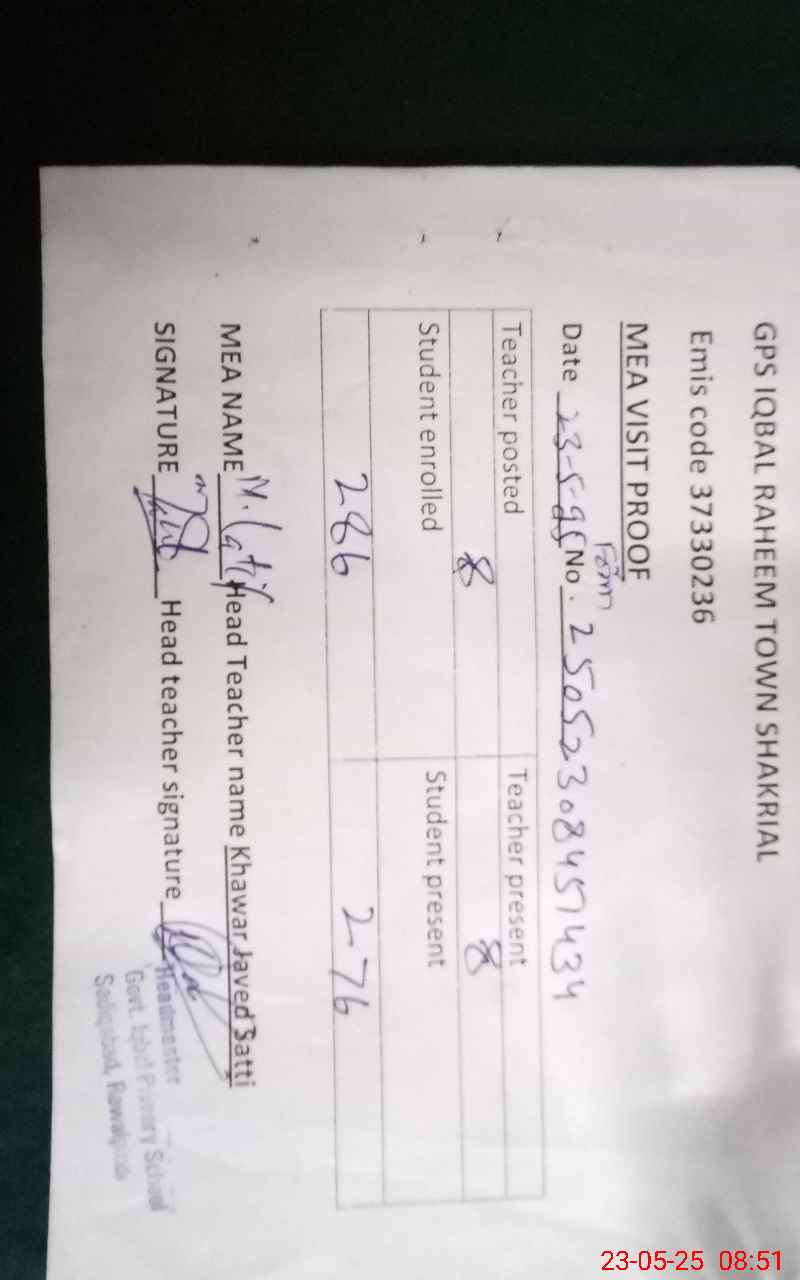 GPS IQBAL RAHEEM TOWN SHAKRIAL
Emis code 37330236
MEA VISIT PROOF
Date 23-5-25 Form No. 250523084571434
Teacher posted Teacher present
8 8
Student enrolled Student present
286 276
MEA NAME M. Latif Head Teacher name Khawar Javed Satti
SIGNATURE Head teacher signature
Headmaster
Govt. Iqbal Primary School
Sadiqabad, Rawalpindi
23-05-25 08:51